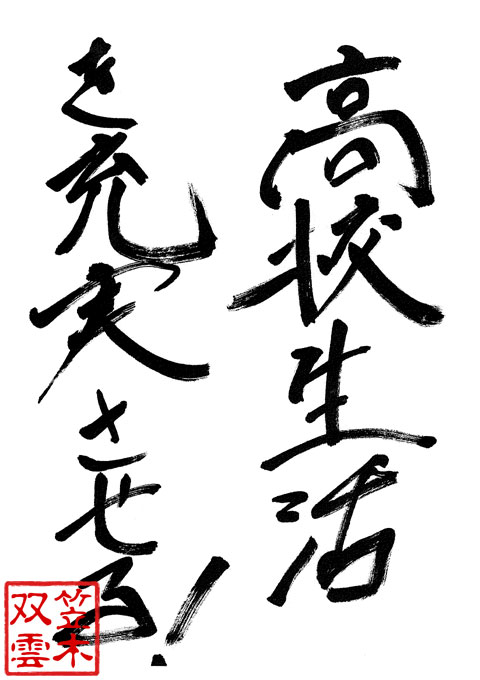 高校生活
を充実させる!
笠木
双雲